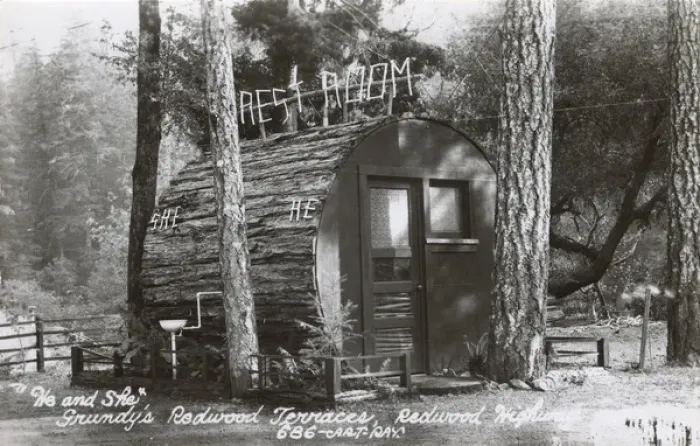 REST ROOM
SHE
HE
"He and She"
Grundy's Redwood Terraces, Redwood Highway
686-ART-RAY.